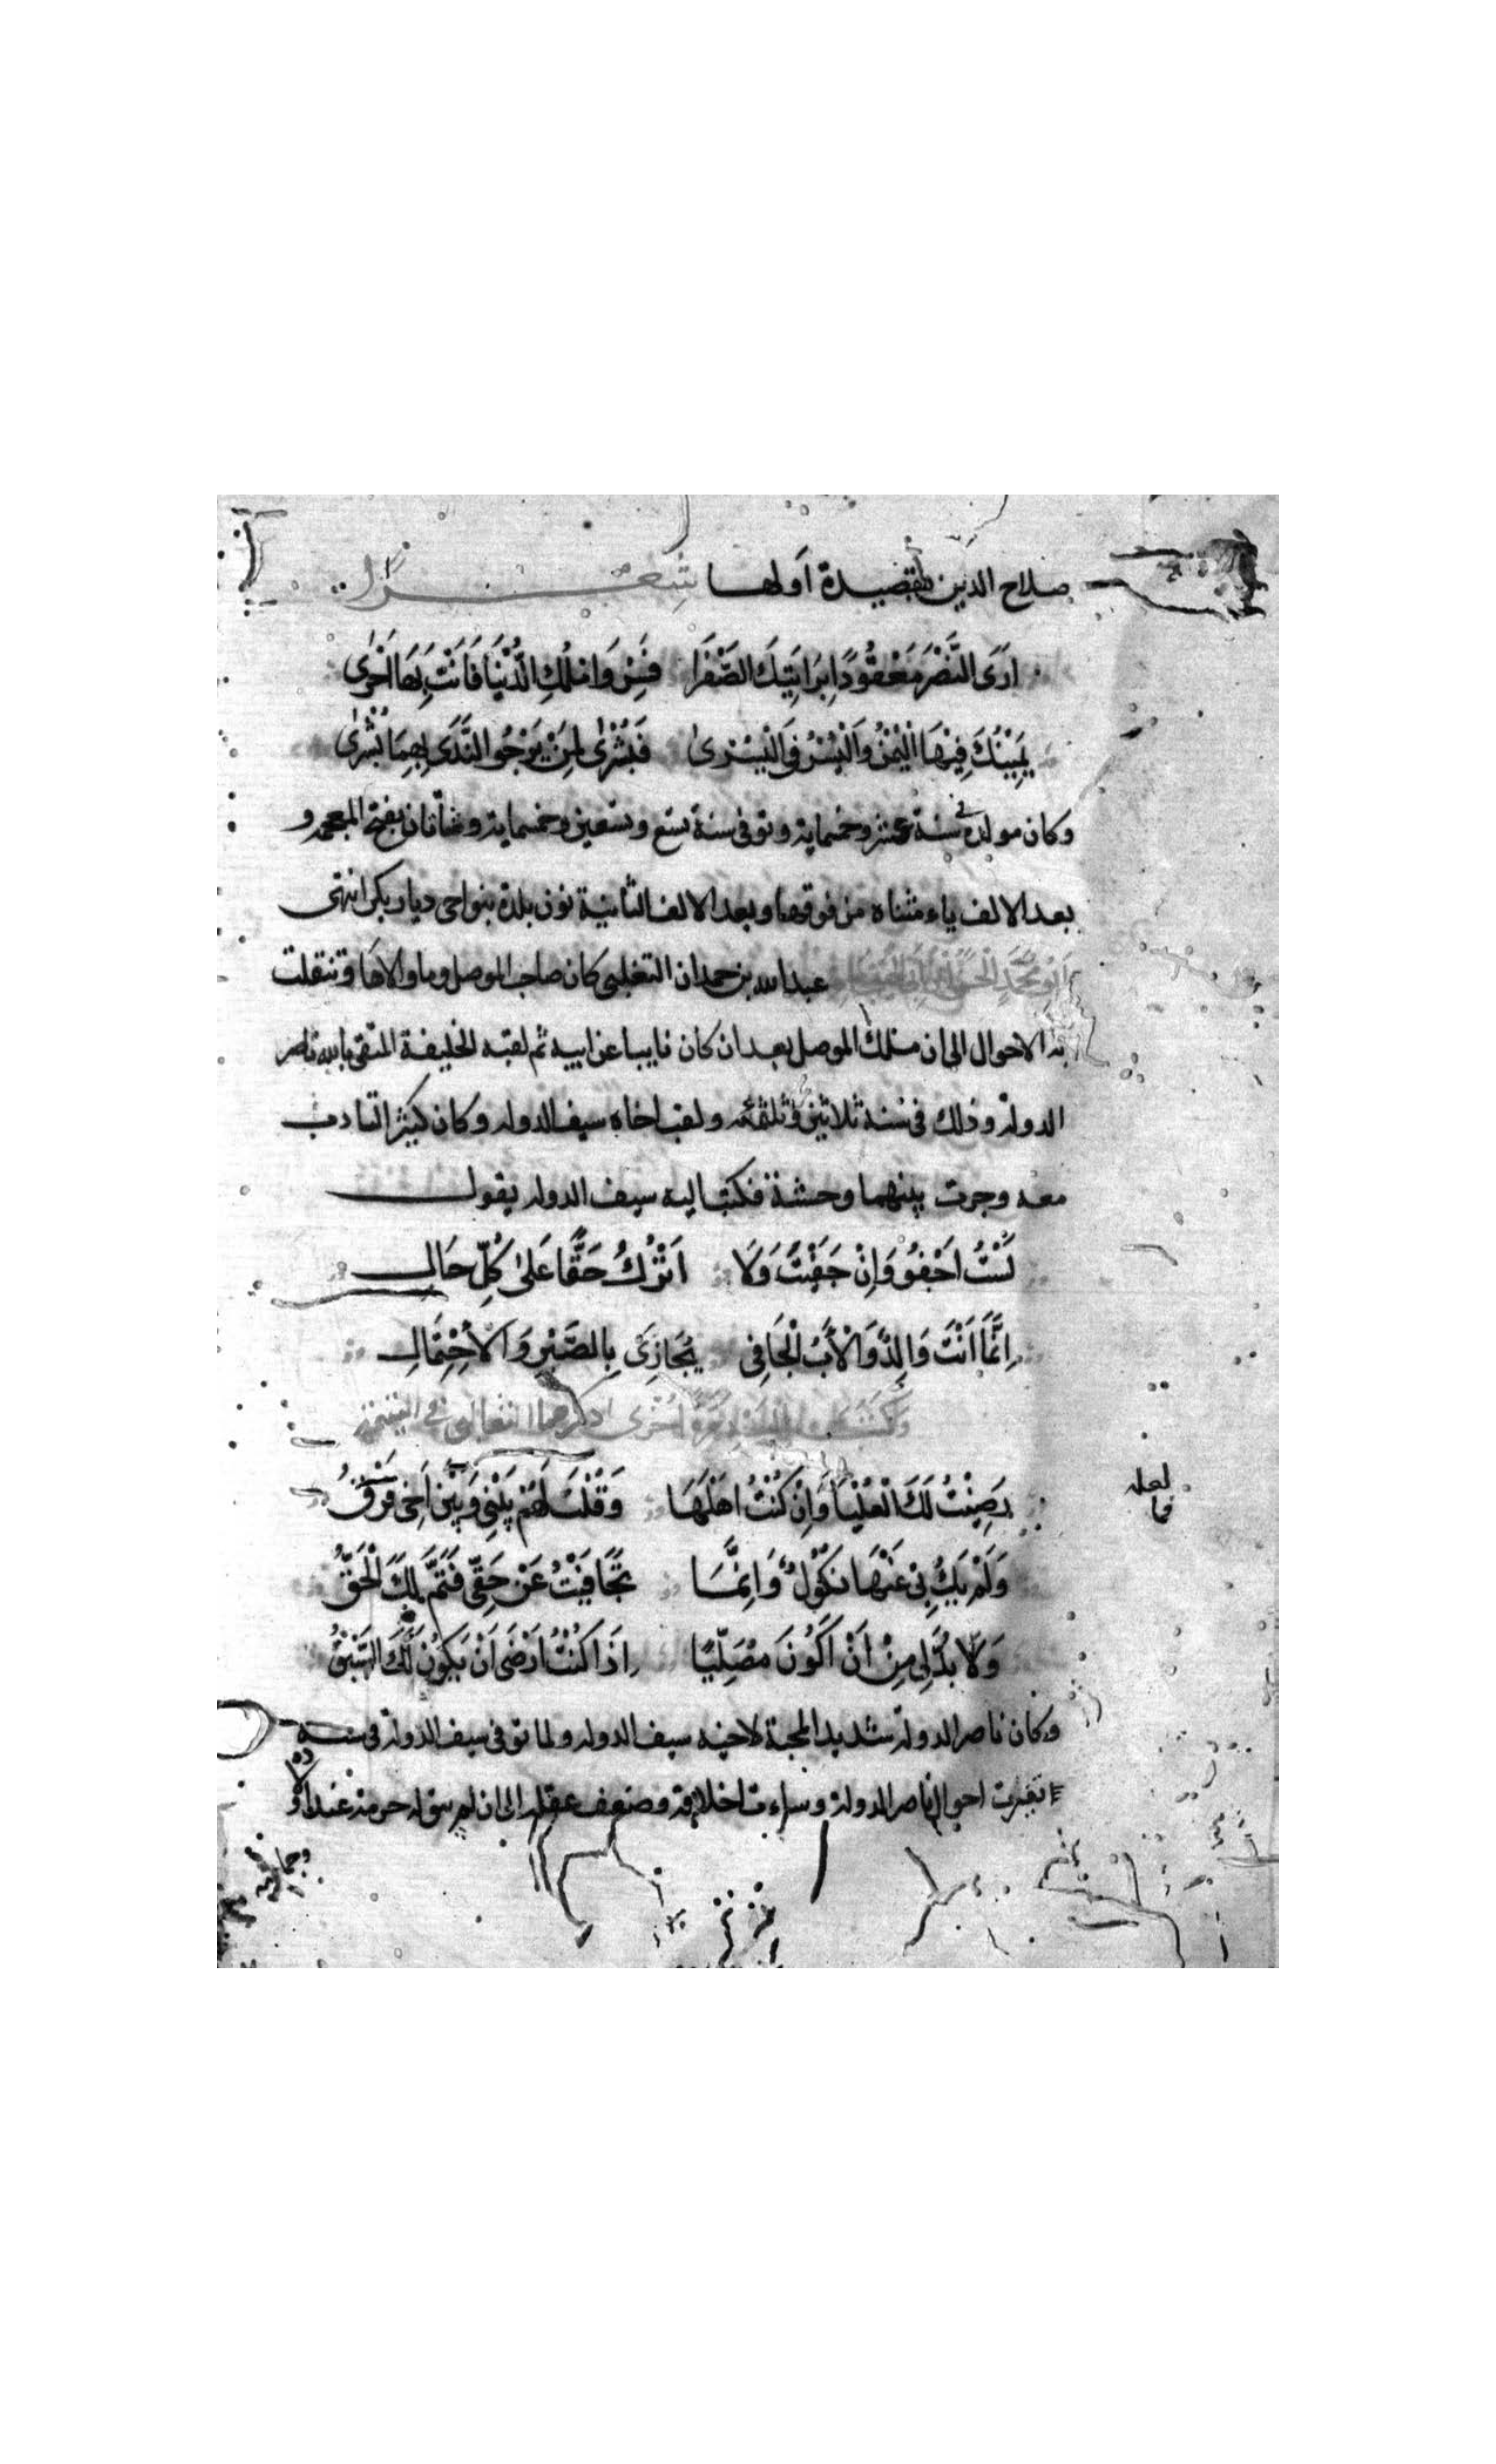 صلاح الدين بقصيدة أولها شعرا
اَرَى النَّصْرَ مَعْقُودًا بِرَايَتِكَ الصَّفْرَا فَسِرْ وَامْلُكِ الدُّنْيَا فَاَنْتَ بِهَا اَحْرٰى
يَمِيْنُكَ فِيْهَا الْيُمْنُ وَالْيُسْرُ فِى الْيُسْرٰى فَبُشْرٰى لِمَنْ يَرْجُو النَّدَى بِهِمَا بُشْرٰى
وكان مولده فى سنة عشر وخمسماية وتوفى سنة تسع وتسعين وخمسماية وشاتان بفتح المعجمة و
بعد الالف ياء مثناه من فوقها وبعد الالف الثانية نون بلدة بنواحى ديار بكر انتهى
اَبُو مُحَمَّدٍ الْحَسَنُ بْنُ اَبِى الْهَيْجَاءِ عبد الله بن حمدان التغلبى كان صاحب الموصل وما والاها وتنقلت
به الاحوال الى ان ملك الموصل بعد ان كان نايبا عن ابيه ثم لقبه الخليفة المتقى بالله ناصر
الدولة وذلك فى سنة ثلاثين وثلثمئه ولقب اخاه سيف الدوله وكان كثير التادب
معه وجرت بينهما وحشة فكتب اليه سيف الدوله يقول
لَسْتُ اَجْفُو وَاِنْ جَفَيْتَ وَلَا اَتْرُكُ حَقًّا عَلٰى كُلِّ حَالِ
اِنَّمَا اَنْتَ وَالِدٌ وَالْاَبُ الْجَافِى يُجَازٰى بِالصَّبْرِ وَالْاِحْتِمَالِ
وَكَتَبَ اِلَيْهِ مَرَّةً اُخْرٰى ذكرها الثعالبى فى اليتيمة
رَضِيْتُ لَكَ الْعُلْيَا وَاِنْ كُنْتُ اَهْلَهَا وَقُلْتُ لَهُمْ بَيْنِى وَبَيْنَ اَخِى فَرْقُ
لعله
فما
وَلَمْ يَكُ بِى عَنْهَا نُكُوْلٌ وَاِنَّمَا تَجَافَيْتُ عَنْ حَقِّى فَتَمَّ لَكَ الْحَقُّ
وَلَا بُدَّ لِى مِنْ اَنْ اَكُوْنَ مُصَلِّيًا اِذَا كُنْتُ اَرْضَى اَنْ يَكُوْنَ لَكَ السَّبْقُ
وكان ناصر الدولة شديد المحبة لاخيه سيف الدوله ولما توفى سيف الدولة فى سنه
تغيرت احوال ناصر الدولة وساءت اخلاقه وضعف عقله الى ان لم يبق له حرمة عند اولاده
وجماعته